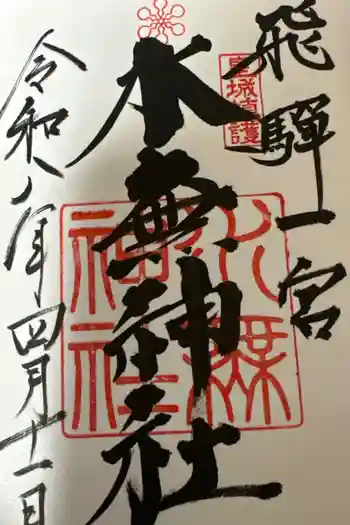 飛騨一宮
皇城鎮護
水無神社
水無神社
令和八年四月十一日